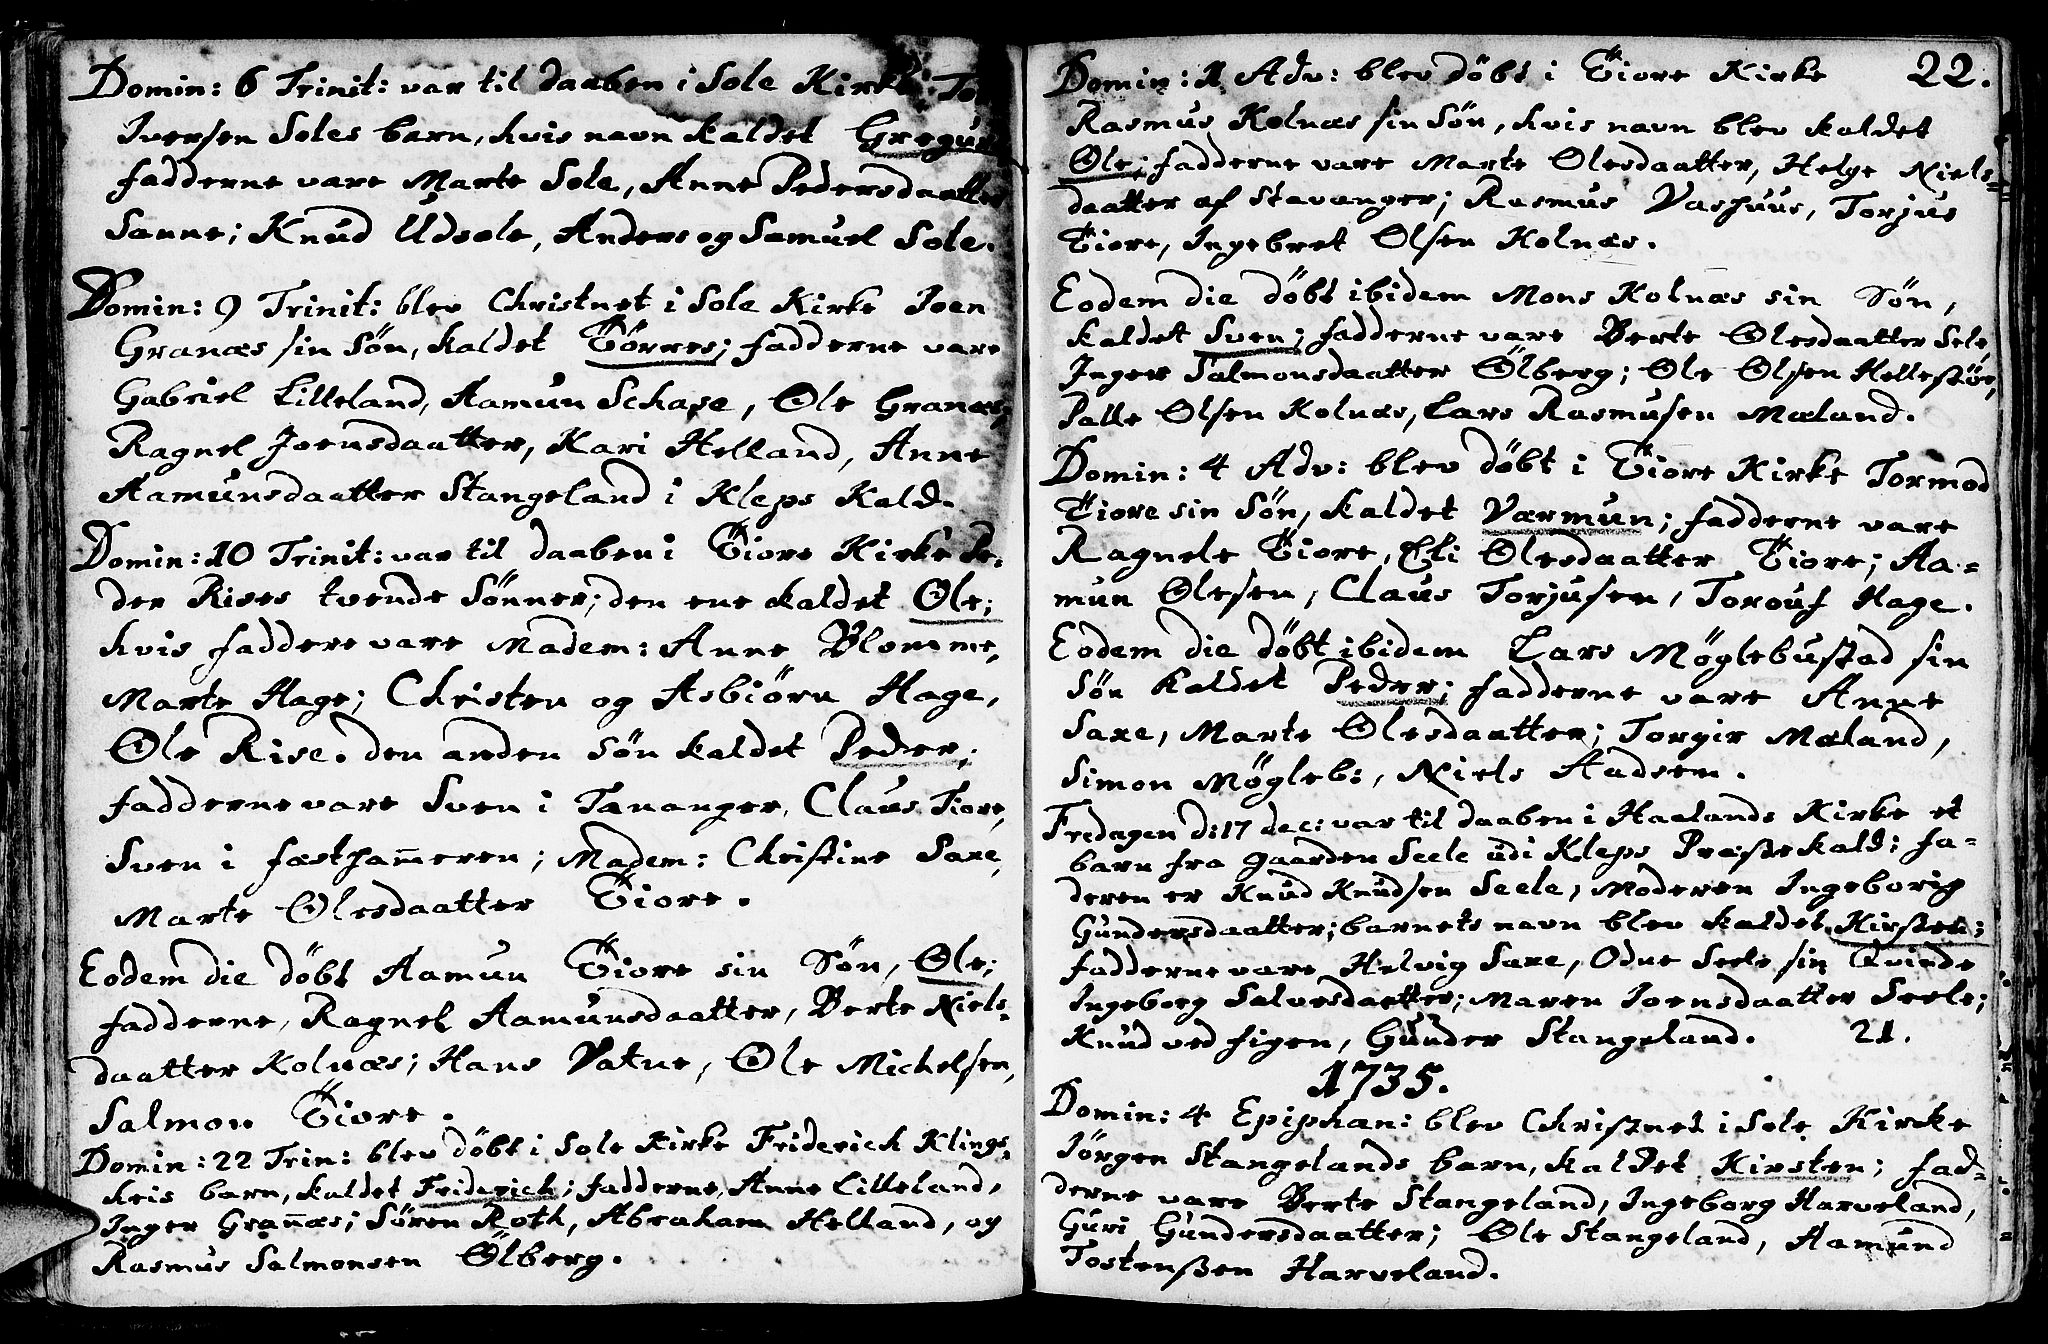 Domin: 6 Trinit: var til daaben i Sole Kirke
Iversen Soles barn, hvis navn kaldet Gregus
fadderne vare Marte Sole, Anne Pedersdaatter
Sanne; Knud Udsole, Anders og Samuel Sole.
Domin: 9 Trinit: blev Christnet i Sole Kirke Joen
Granæs sin Søn, kaldet Törres; fadderne vare
Gabriel Lilleland, Aamun Schase, Ole Granæs,
Ragnel Joensdaatter, Kari Helland, Anne
Aamunsdaatter Stangeland i Kleps Kald.
Domin: 10 Trinit: var til daaben i Tiore Kirke Pe-
der Rises tvende Sønner; den ene kaldet Ole;
hvis faddere vare Madem: Anne Blomme,
Marte Hage; Christen og Asbiörn Hage,
Ole Rise. den anden Søn kaldet Peder;
fadderne vare Sven i Tananger, Claus Tiore,
Sven i fæstham̄eren; Madem: Christine Saxe,
Marte Olesdaatter Tiore.
Eodem die döbt Aamun Tiore sin Søn, Ole;
fadderne, Ragnel Aamunsdaatter, Berte Niels-
daatter Kolnæs; Hans Vatne, Ole Michelsen,
Salmon Tiore.
Domin: 22 Trin: blev döbt i Sole Kirke Friderich Klings-
heis barn, kaldet Friderich; fadderne, Anne Lilleland,
Inger Gran̄æs; Sören Roth, Abraham Helland, og
Rasmus Salmonsen Ölberg.
22.
Domin: 1 Adv: blev döbt i Tiore Kirke
Rasmus Kolnæs sin Søn, hvis navn blev kaldet
Ole; fadderne vare Marte Olesdaatter, Helge Niels=
daatter af Stavanger; Rasmus Vashuus, Torjus
Tiore, Ingebret Olsen Kolnæs.
Eodem die döbt ibidem Mons Kolnæs sin Søn,
kaldet Sven; fadderne vare Berte Olesdaatter Sele
Inger Salmonsdaatter Ölberg; Ole Olsen Hellestöe,
Palle Olsen Kolnæs, Lars Rasmusen Mæland.
Domin: 4 Adv: blev döbt i Tiore Kirke Tormod
Tiore sin Søn, kaldet Værmun; fadderne vare
Ragnele Tiore, Eli Olesdaatter Tiore; Aa-
mun Olesen, Claus Torjusen, Torouf Hage.
Eodem die döbt ibidem Lars Möglebustad sin
Søn kaldet Peder; fadderne vare Anne
Saxe, Marte Olesdaatter; Torgir Mæland,
Simon Mögleb:, Niels Aadsen.
Fredagen d: 17 dec: var til daaben i Haalands Kirke et
barn fra gaarden Seele udi Kleps Præstekald: fa-
deren er Knud Knudsen Seele, Moderen Ingeborig
Gundersdaatter; barnets navn blev kaldet Kirsten;
fadderne vare Helvig Saxe, Odne Seele sin Qvinde
Ingeborg Salvesdaatter; Maren Joensdaatter Seele;
Knud ved sigen, Gunder Stangeland. 21.
1735.
Domin: 4 Epiphan: blev Christnet i Sole Kirke
Jörgen Stangelands barn, kaldet Kirsten; fad-
derne vare Berte Stangeland, Ingeborg Harveland,
Guri Gundersdaatter; Ole Stangeland, Aamund
Tostenssen Harveland.